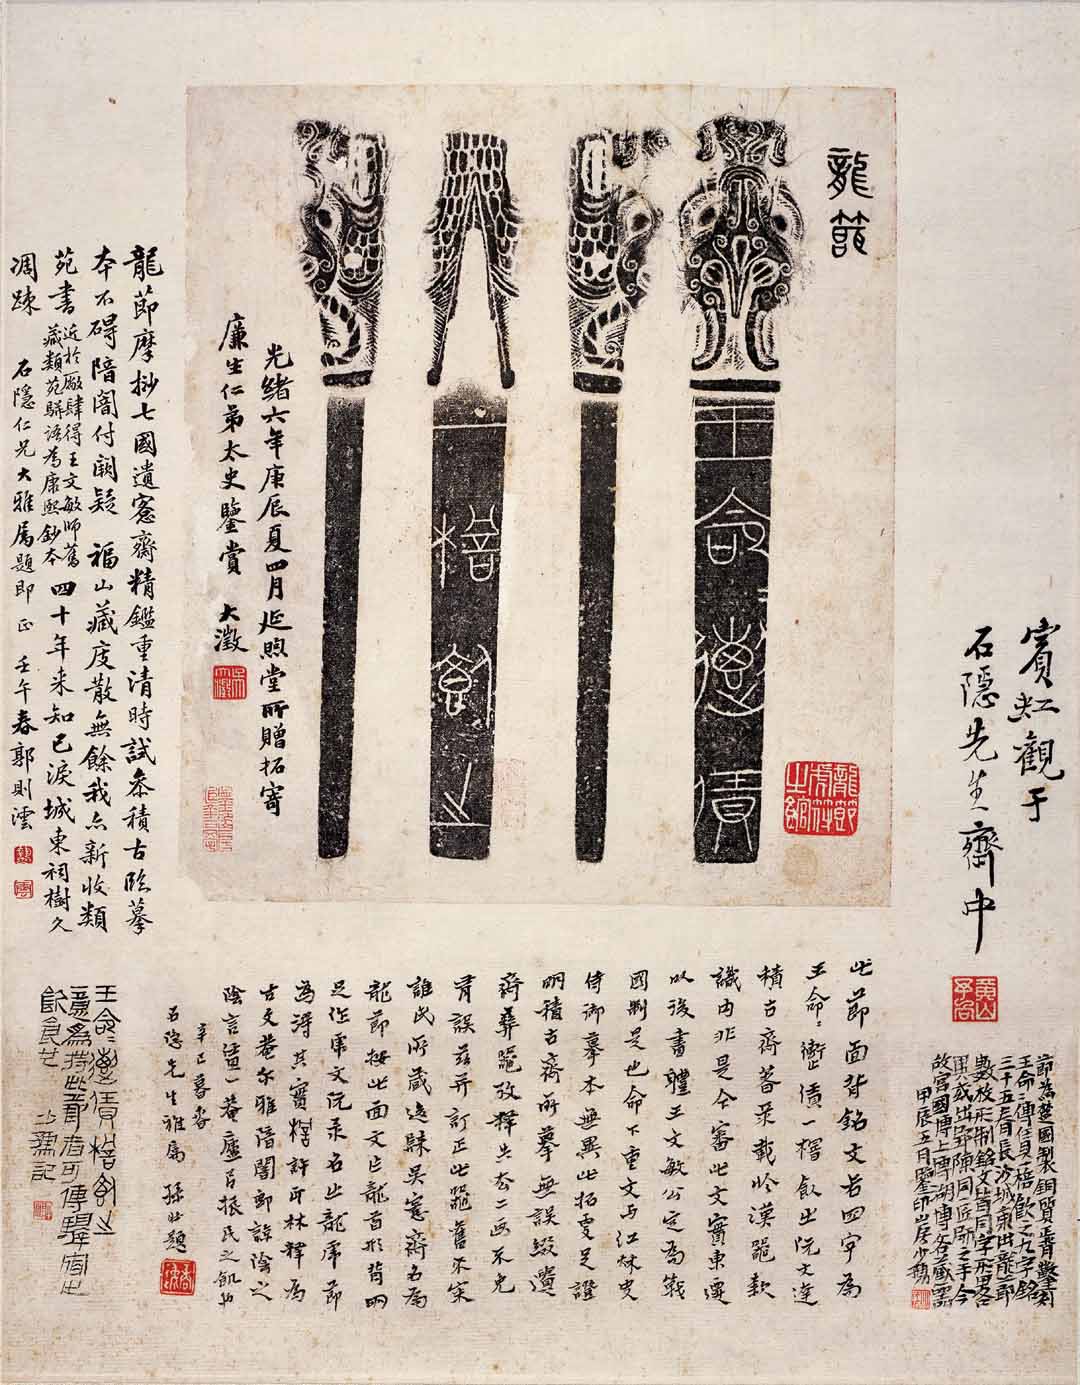 龍節
王命傳賃
一㮴飤之
龍節虎符之館
光緒六年庚辰夏四月延煦堂所贈拓寄
廉生仁弟太史鑒賞 大澂
賓虹觀于
石隱先生齋中
黃山予向
節為楚國製銅質
王命=傳賃一㮴飲之九字銘
長沙城東出龍節
數枚形制銘文皆同字亦畧
用或出郢陳同一匠師之手今
故宮國博上博湖博各藏器
甲辰五月鑒印山房
此節面背銘文各四字為
王命=衝止債一㯓飲止阮文達
積古齋著录載於漢器款
識内非是今審此文實東遷
以後書體王文敏公定為戰
國制是也命下重文与江秋史
侍御摹本無異此拓更足證
明積古齋所摹無誤綴遺
齋彝器攷釋夺二画不免
有誤茲并訂正此器舊不審
誰氏所藏逸歸吳愙齋名為
龍節按此面文上龍首形背明
足作虎文阮录名止龍虎節
為得其實㯓許印林釋為
古文菴尔雅陪闇郭註陰之
陰言一菴廬吕振民之飢也
辛巳暮春
石隱先生雅屬 孫壯題
龍節摩挱七國遺愙齋精鑑重清時試叅積古臨摹
本不碍陪闇付闕疑 福山藏庋散無餘我亦新收類
苑書 近於廠肆得王文敏師舊藏類苑駢語為康熙鈔本 四十年来知己淚城東祠樹久
凋疎 石隱仁兄大雅屬題即正 壬午春郭則澐
王命=傳賃㯓飤之
意為持此節者可傳驛宿止
飲食也 記